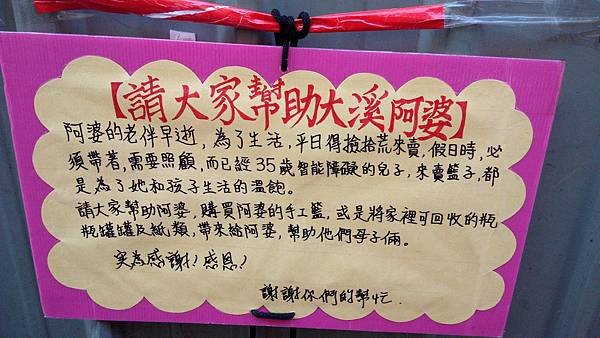 【請大家幫助大溪阿婆】
阿婆的老伴早逝，為了生活，平日得撿拾荒來賣，假日時，必
須帶著，需要照顧，而已經35歲智能障礙的兒子，來賣籃子，都
是為了她和孩子生活的溫飽。
請大家幫助阿婆，購買阿婆的手工籃，或是將家裡可回收的瓶
瓶罐罐及紙類，帶來給阿婆，幫助他們母子倆。
実為感謝！感恩！
謝謝你們的幫忙．